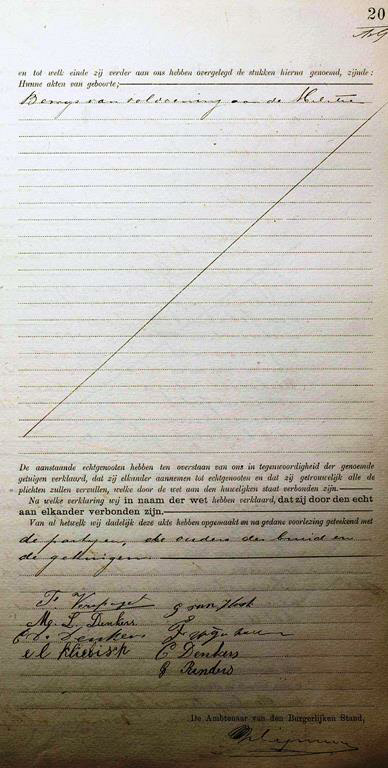 20
en tot welk einde zij verder aan ons hebben overgelegd de stukken hierna genoemd, zijnde:
Hunne akten van geboorte;
Bewijs van voldoening aan de Militie
De aanstaande echtgenooten hebben ten overstaan van ons in tegenwoordigheid der genoemde
getuigen verklaard, dat zij elkander aannemen tot echtgenooten en dat zij getrouwelijk alle de
plichten zullen vervullen, welke door de wet aan den huwelijken staat verbonden zijn.
Na welke verklaring wij in naam der wet hebben verklaard, dat zij door den echt
aan elkander verbonden zijn.
Van al hetwelk wij dadelijk deze akte hebben opgemaakt en na gedane voorlezing geteekend met
de partijen, de ouders der bruid en
de getuigen
Mg. L. Denkers
Denkers
C Denkers
Reinders
De Ambtenaar van den Burgerlijken Stand,